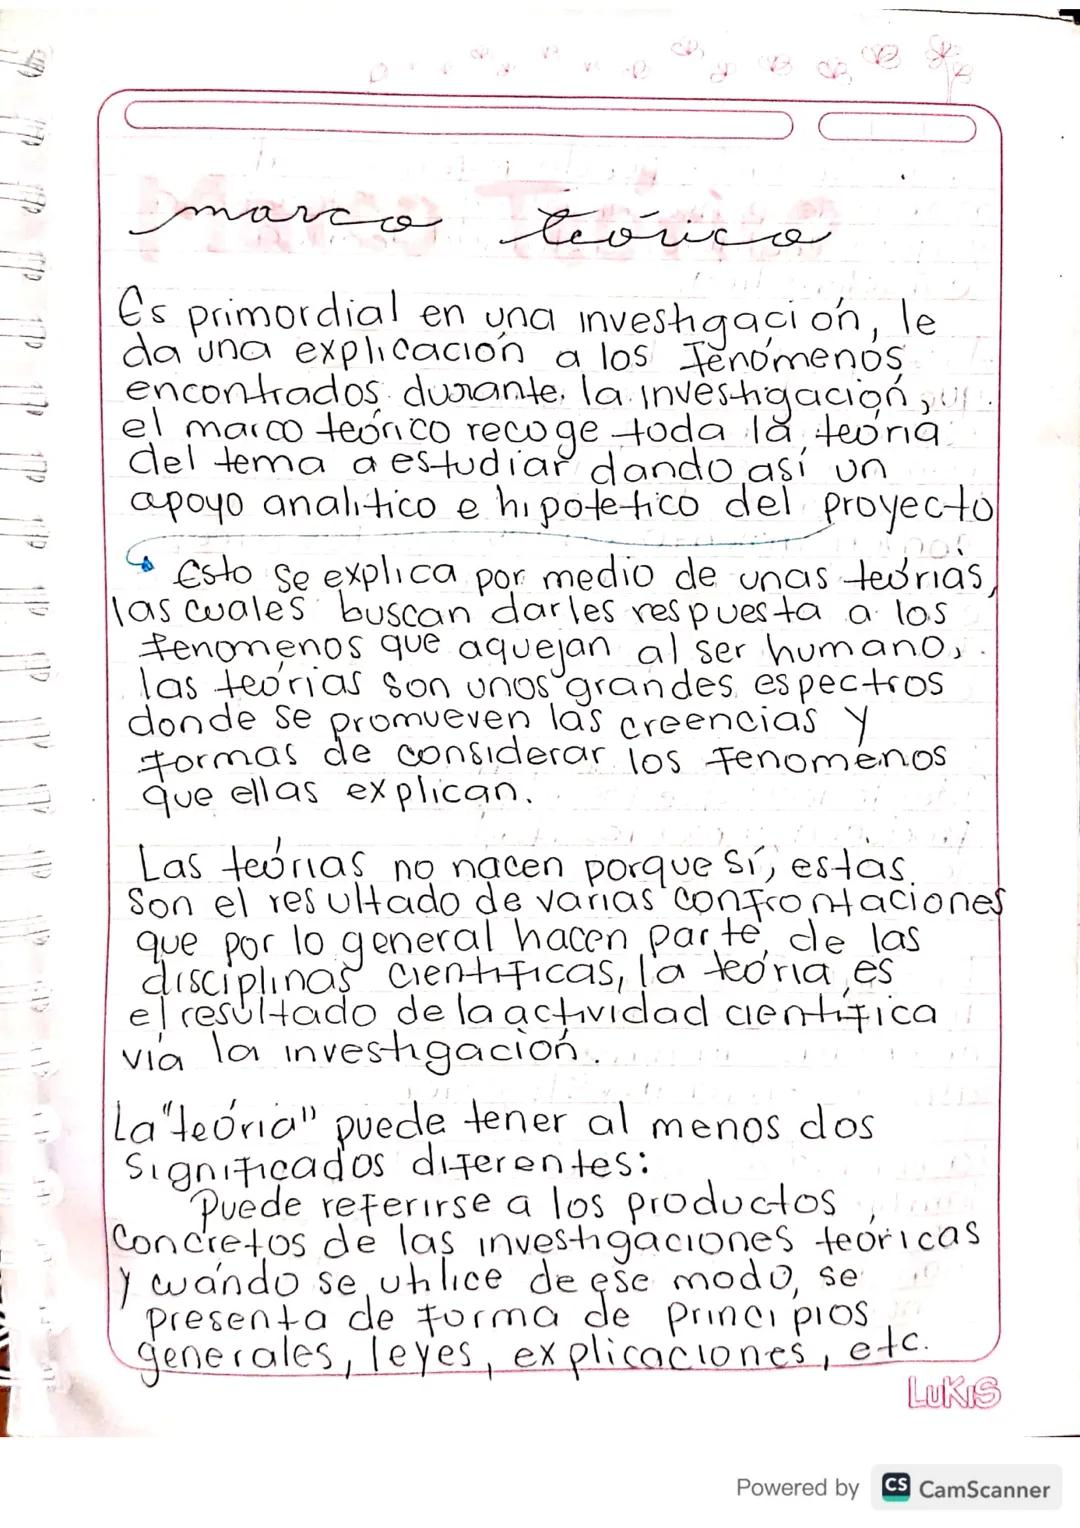 marco teórico
Es primordial en una investigación, le
da una explicación a los fenómenos
encontrados durante la investigación,
el marco teórico recoge toda la teória
del tema a estudiar dando así un
apoyo analitico e hipotetico del proyecto
Esto se explica por medio de unas teórias,
las cuales buscan darles respuesta a los
fenomenos que aquejan al ser humano,
las teórias son unos grandes espectros
donde se promueven las creencias y
formas de considerar los fenomenos
que ellas explican.
Las teórias no nacen porque sí, estas
son el resultado de varias confrontaciones
que por lo general hacen parte de las
disciplinas cientificas, la teória es
el resultado de la actividad científica
vía la investigación.
La "teória" puede tener al menos dos
significados diferentes:
Puede referirse a los productos
concretos de las investigaciones teóricas
y cuándo se utilice de ese modo, se
presenta de forma de principios
generales, leyes, explicaciones, etc.
LUKIS
Powered by CS CamScanner